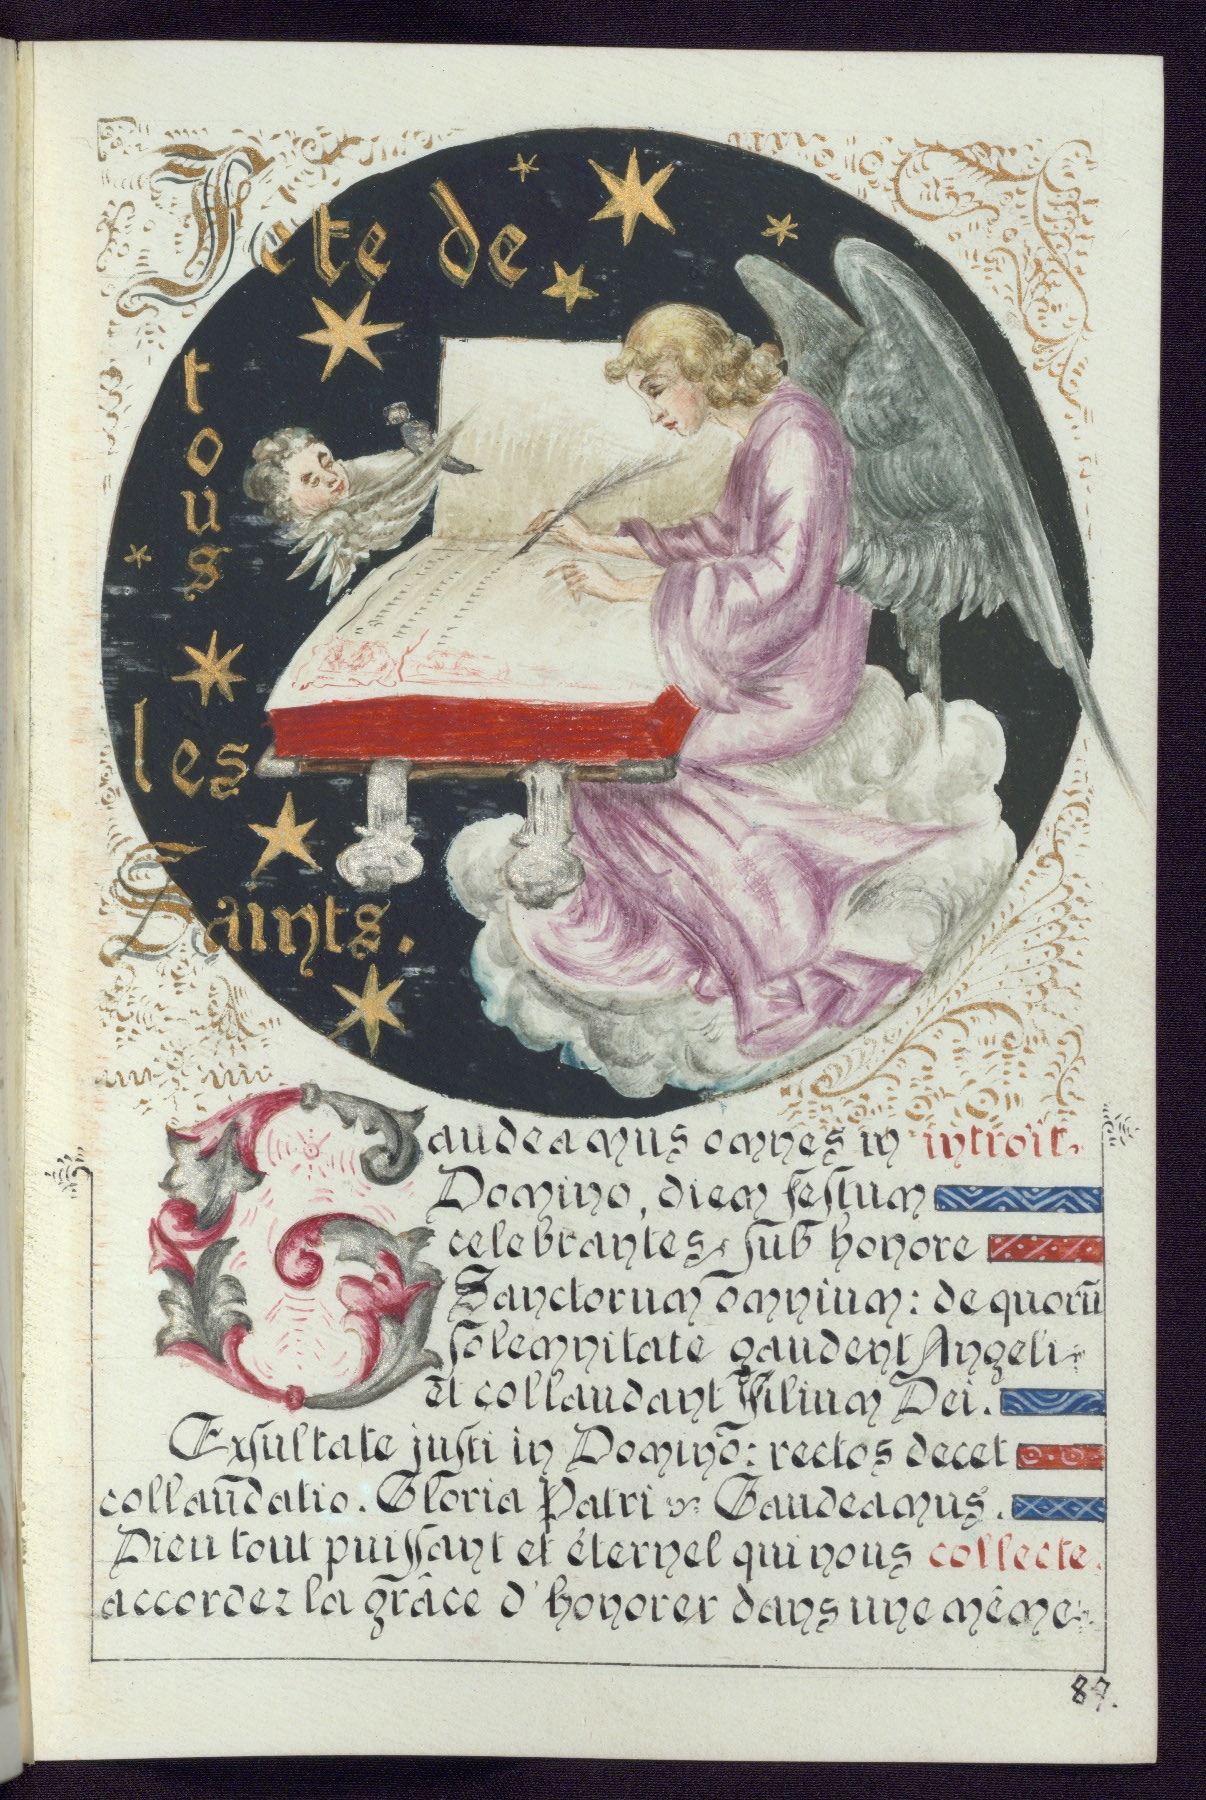 Fete de
tous
les
Saints.
Gaudeamus omnes in introït.
Domino, diem festum
celebrantes sub honore
Sanctorum omnium: de quorū
solemnitate gaudent Angeli
et collaudant Filium Dei.
Exsultate justi in Domino: rectos decet
collaudatio. Gloria Patri Gaudeamus.
Dieu tout puissant et éternel qui nous collecte.
accordez la grâce d'honorer dans une même
87.